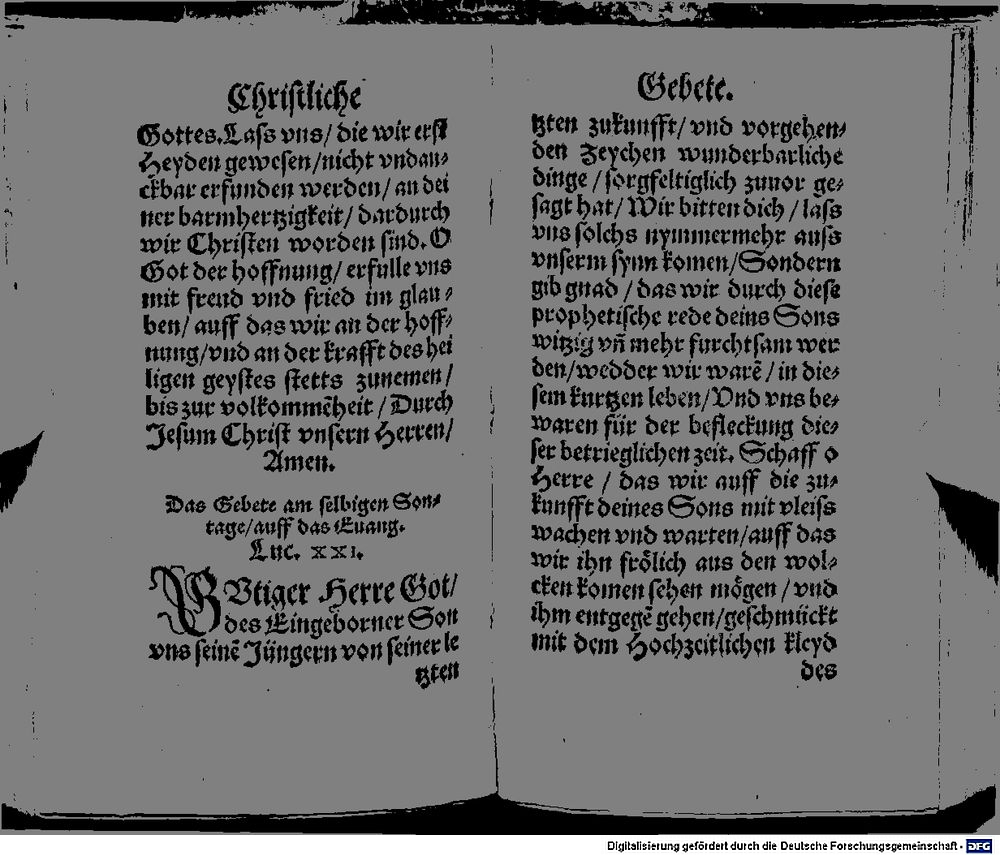 Christliche
Gottes. Lass vns/ die wir erst
Heyden gewesen/nicht vndan⸗
ckbar erfunden werden/ an dei
ner barmhertzigkeit/ dardurch
wir Christen worden sind. O
Got der hoffnung/ erfulle vns
mit freud vnd fried im glau⸗
ben/ auff das wir an der hoff⸗
nung/vnd an der krafft des hei
ligen geystes stetts zunemen/
bis zur volkommẽheit / Durch
Jesum Christ vnsern Herren/
Amen.
Das Gebete am selbigen Son⸗
tage/auff das Euang.
Luc. XXI.
GVtiger Herre Got/
des Eingeborner Son
vns seinẽ Jüngern von seiner le
tzten
Gebete.
tzten zukunfft/ vnd vorgehen⸗
den Zeychen wunderbarliche
dinge /sorgfeltiglich zuuor ge⸗
sagt hat/ Wir bitten dich / lass
vns solchs nymmermehr auss
vnserm synn komen/Sondern
gib gnad / das wir durch diese
prophetische rede deins Sons
witzig vñ mehr furchtsam wer
den/wedder wir warẽ / in die⸗
sem kurtzen leben/ Vnd vns be⸗
waren für der befleckung die⸗
ser betrieglichen zeit. Schaff o
Herre / das wir auff die zu⸗
kunfft deines Sons mit vleiss
wachen vnd warten/auff das
wir ihn frölich aus den wol⸗
cken komen sehen mögen / vnd
ihm entgegẽ gehen/geschmückt
mit dem Hochzeitlichen kleyd
des
Digitalisierung gefördert durch die Deutsche Forschungsgemeinschaft - DFG